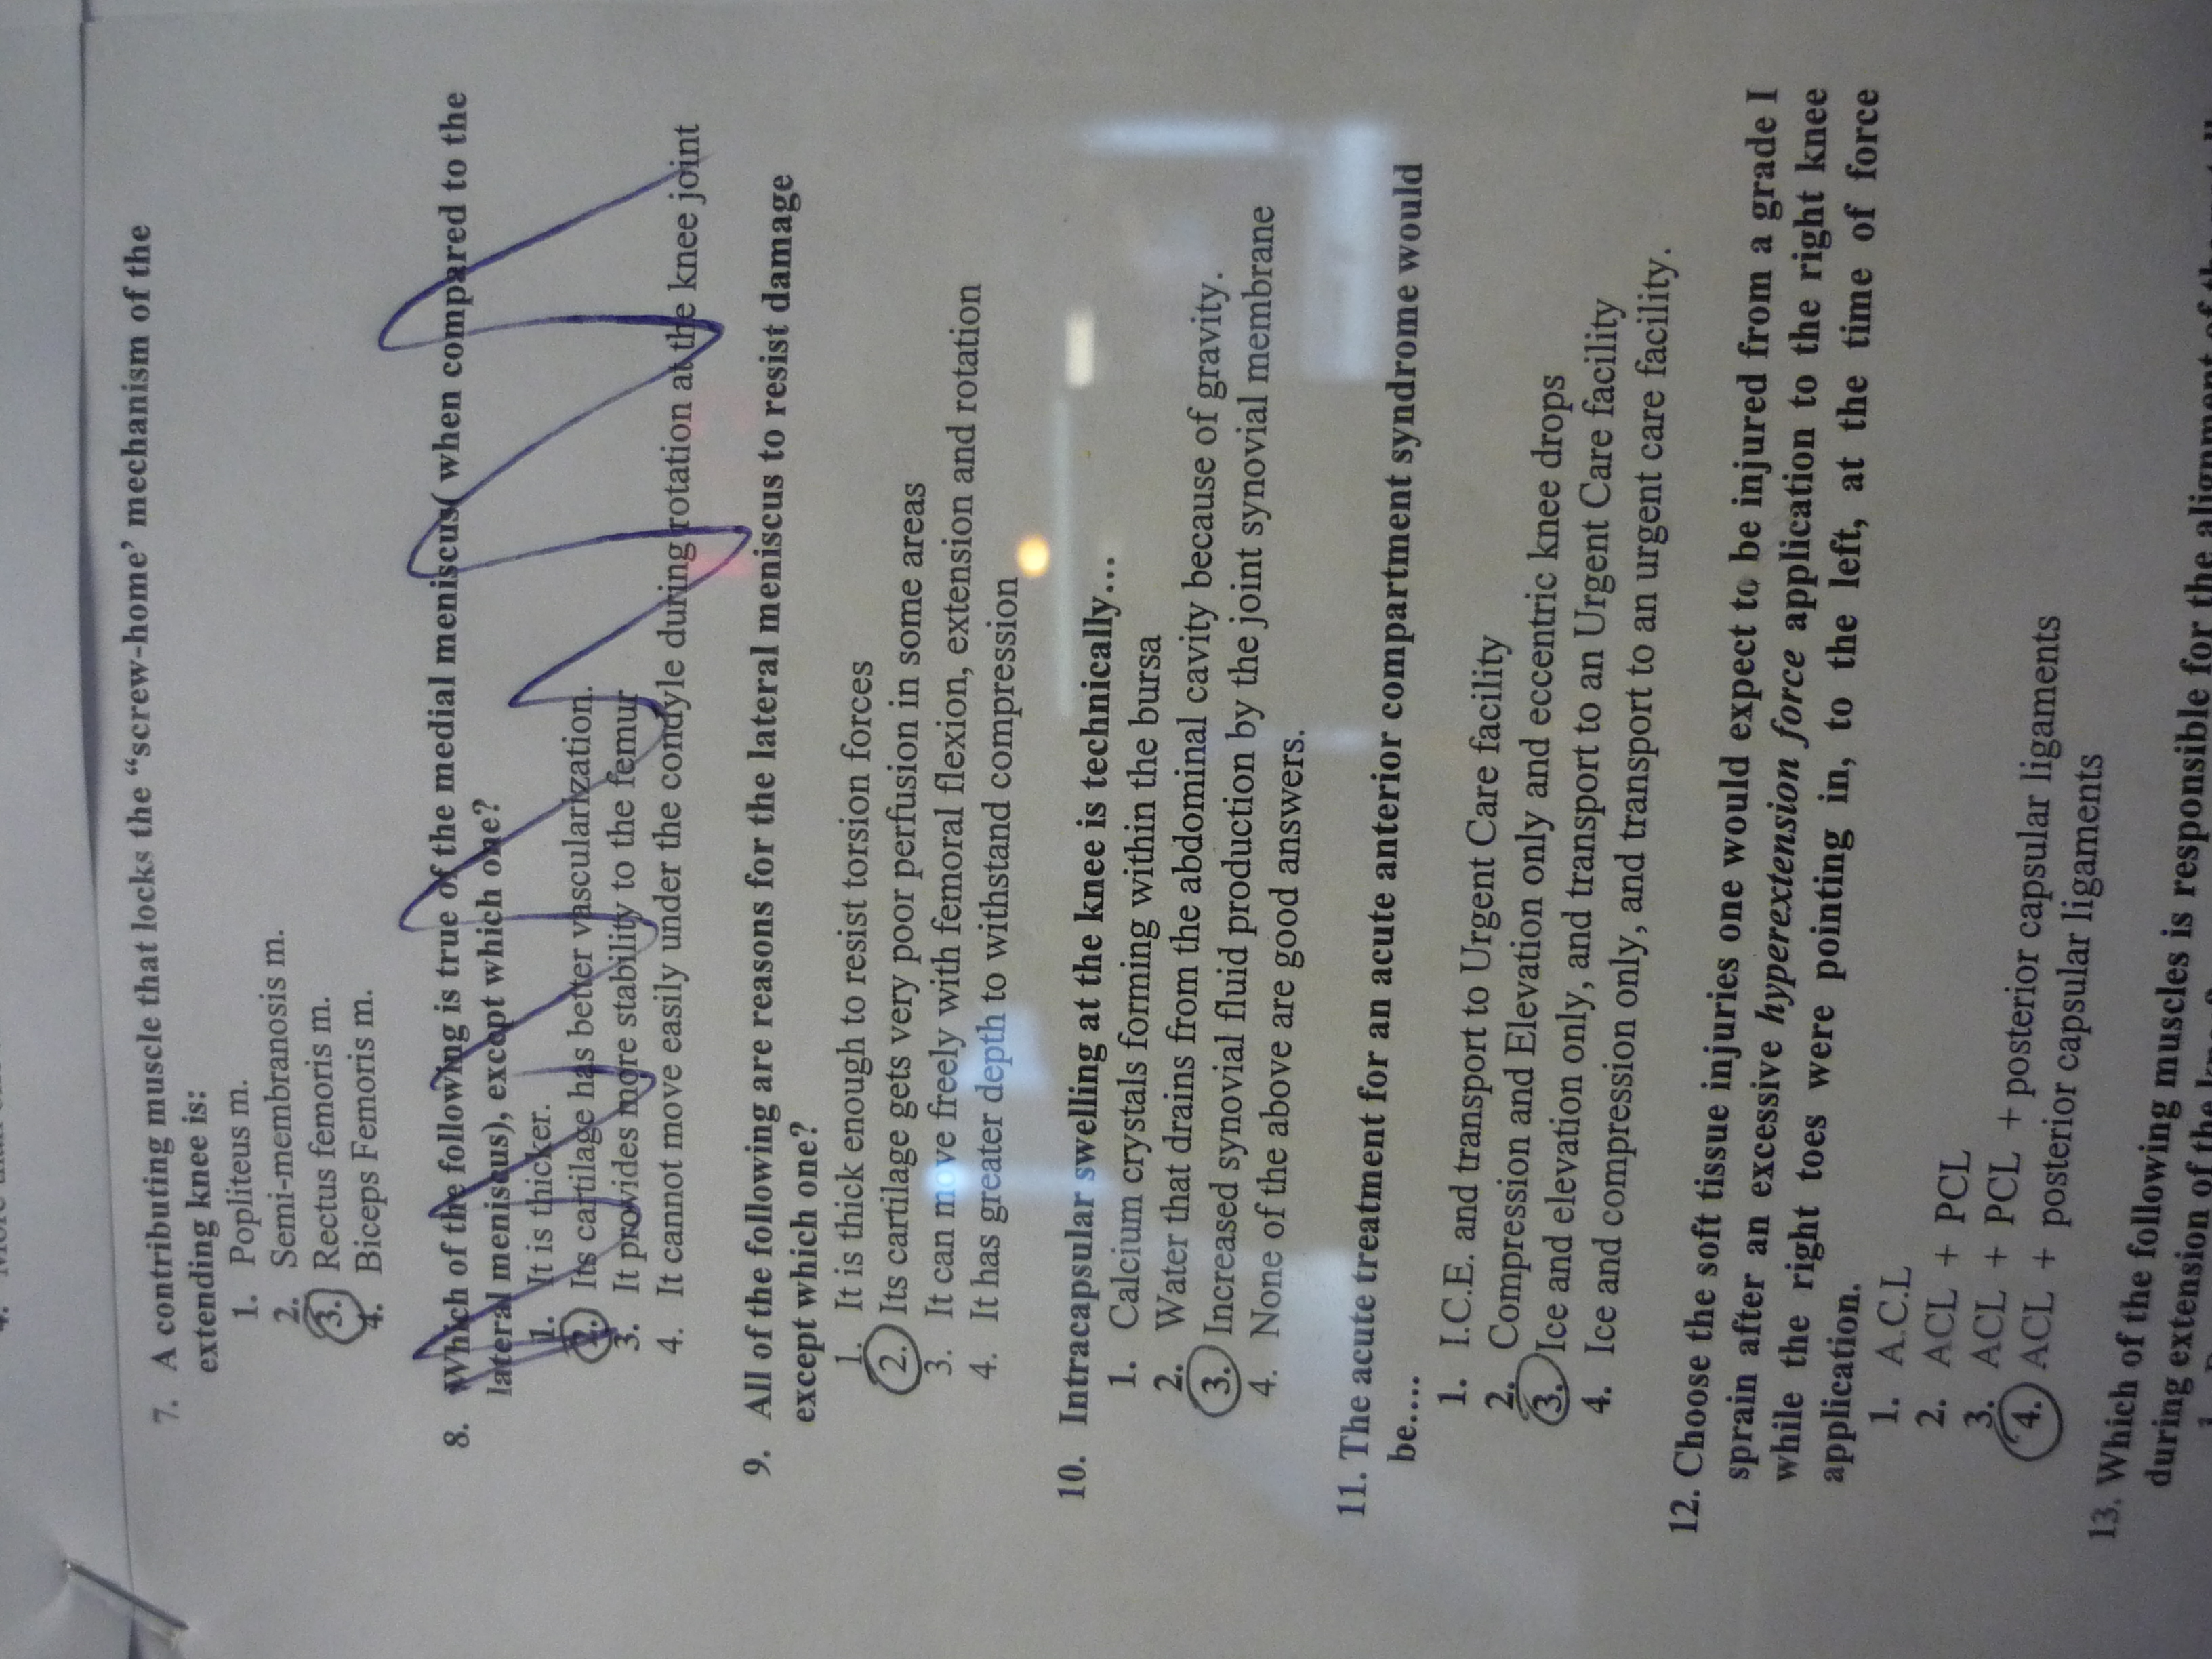 7. A contributing muscle that locks the “screw-home’ mechanism of the
extending knee is:
1. Popliteus m.
2. Semi-membranosis m.
3. Rectus femoris m.
4. Biceps Femoris m.
8. Which of the following is true of the medial meniscus( when compared to the
lateral meniscus), except which one?
1. It is thicker.
2. Its cartilage has better vascularization.
3. It provides more stability to the femur
4. It cannot move easily under the condyle during rotation at the knee joint
9. All of the following are reasons for the lateral meniscus to resist damage
except which one?
1. It is thick enough to resist torsion forces
2. Its cartilage gets very poor perfusion in some areas
3. It can move freely with femoral flexion, extension and rotation
4. It has greater depth to withstand compression
10. Intracapsular swelling at the knee is technically…
1. Calcium crystals forming within the bursa
2. Water that drains from the abdominal cavity because of gravity.
3. Increased synovial fluid production by the joint synovial membrane
4. None of the above are good answers.
11. The acute treatment for an acute anterior compartment syndrome would
be….
1. I.C.E. and transport to Urgent Care facility
2. Compression and Elevation only and eccentric knee drops
3. Ice and elevation only, and transport to an Urgent Care facility
4. Ice and compression only, and transport to an urgent care facility.
12. Choose the soft tissue injuries one would expect to be injured from a grade I
sprain after an excessive hyperextension force application to the right knee
while the right toes were pointing in, to the left, at the time of force
application.
1. A.C.L
2. ACL + PCL
3. ACL + PCL + posterior capsular ligaments
4. ACL + posterior capsular ligaments
13. Which of the following muscles is responsible for the alignment of
during extension of the